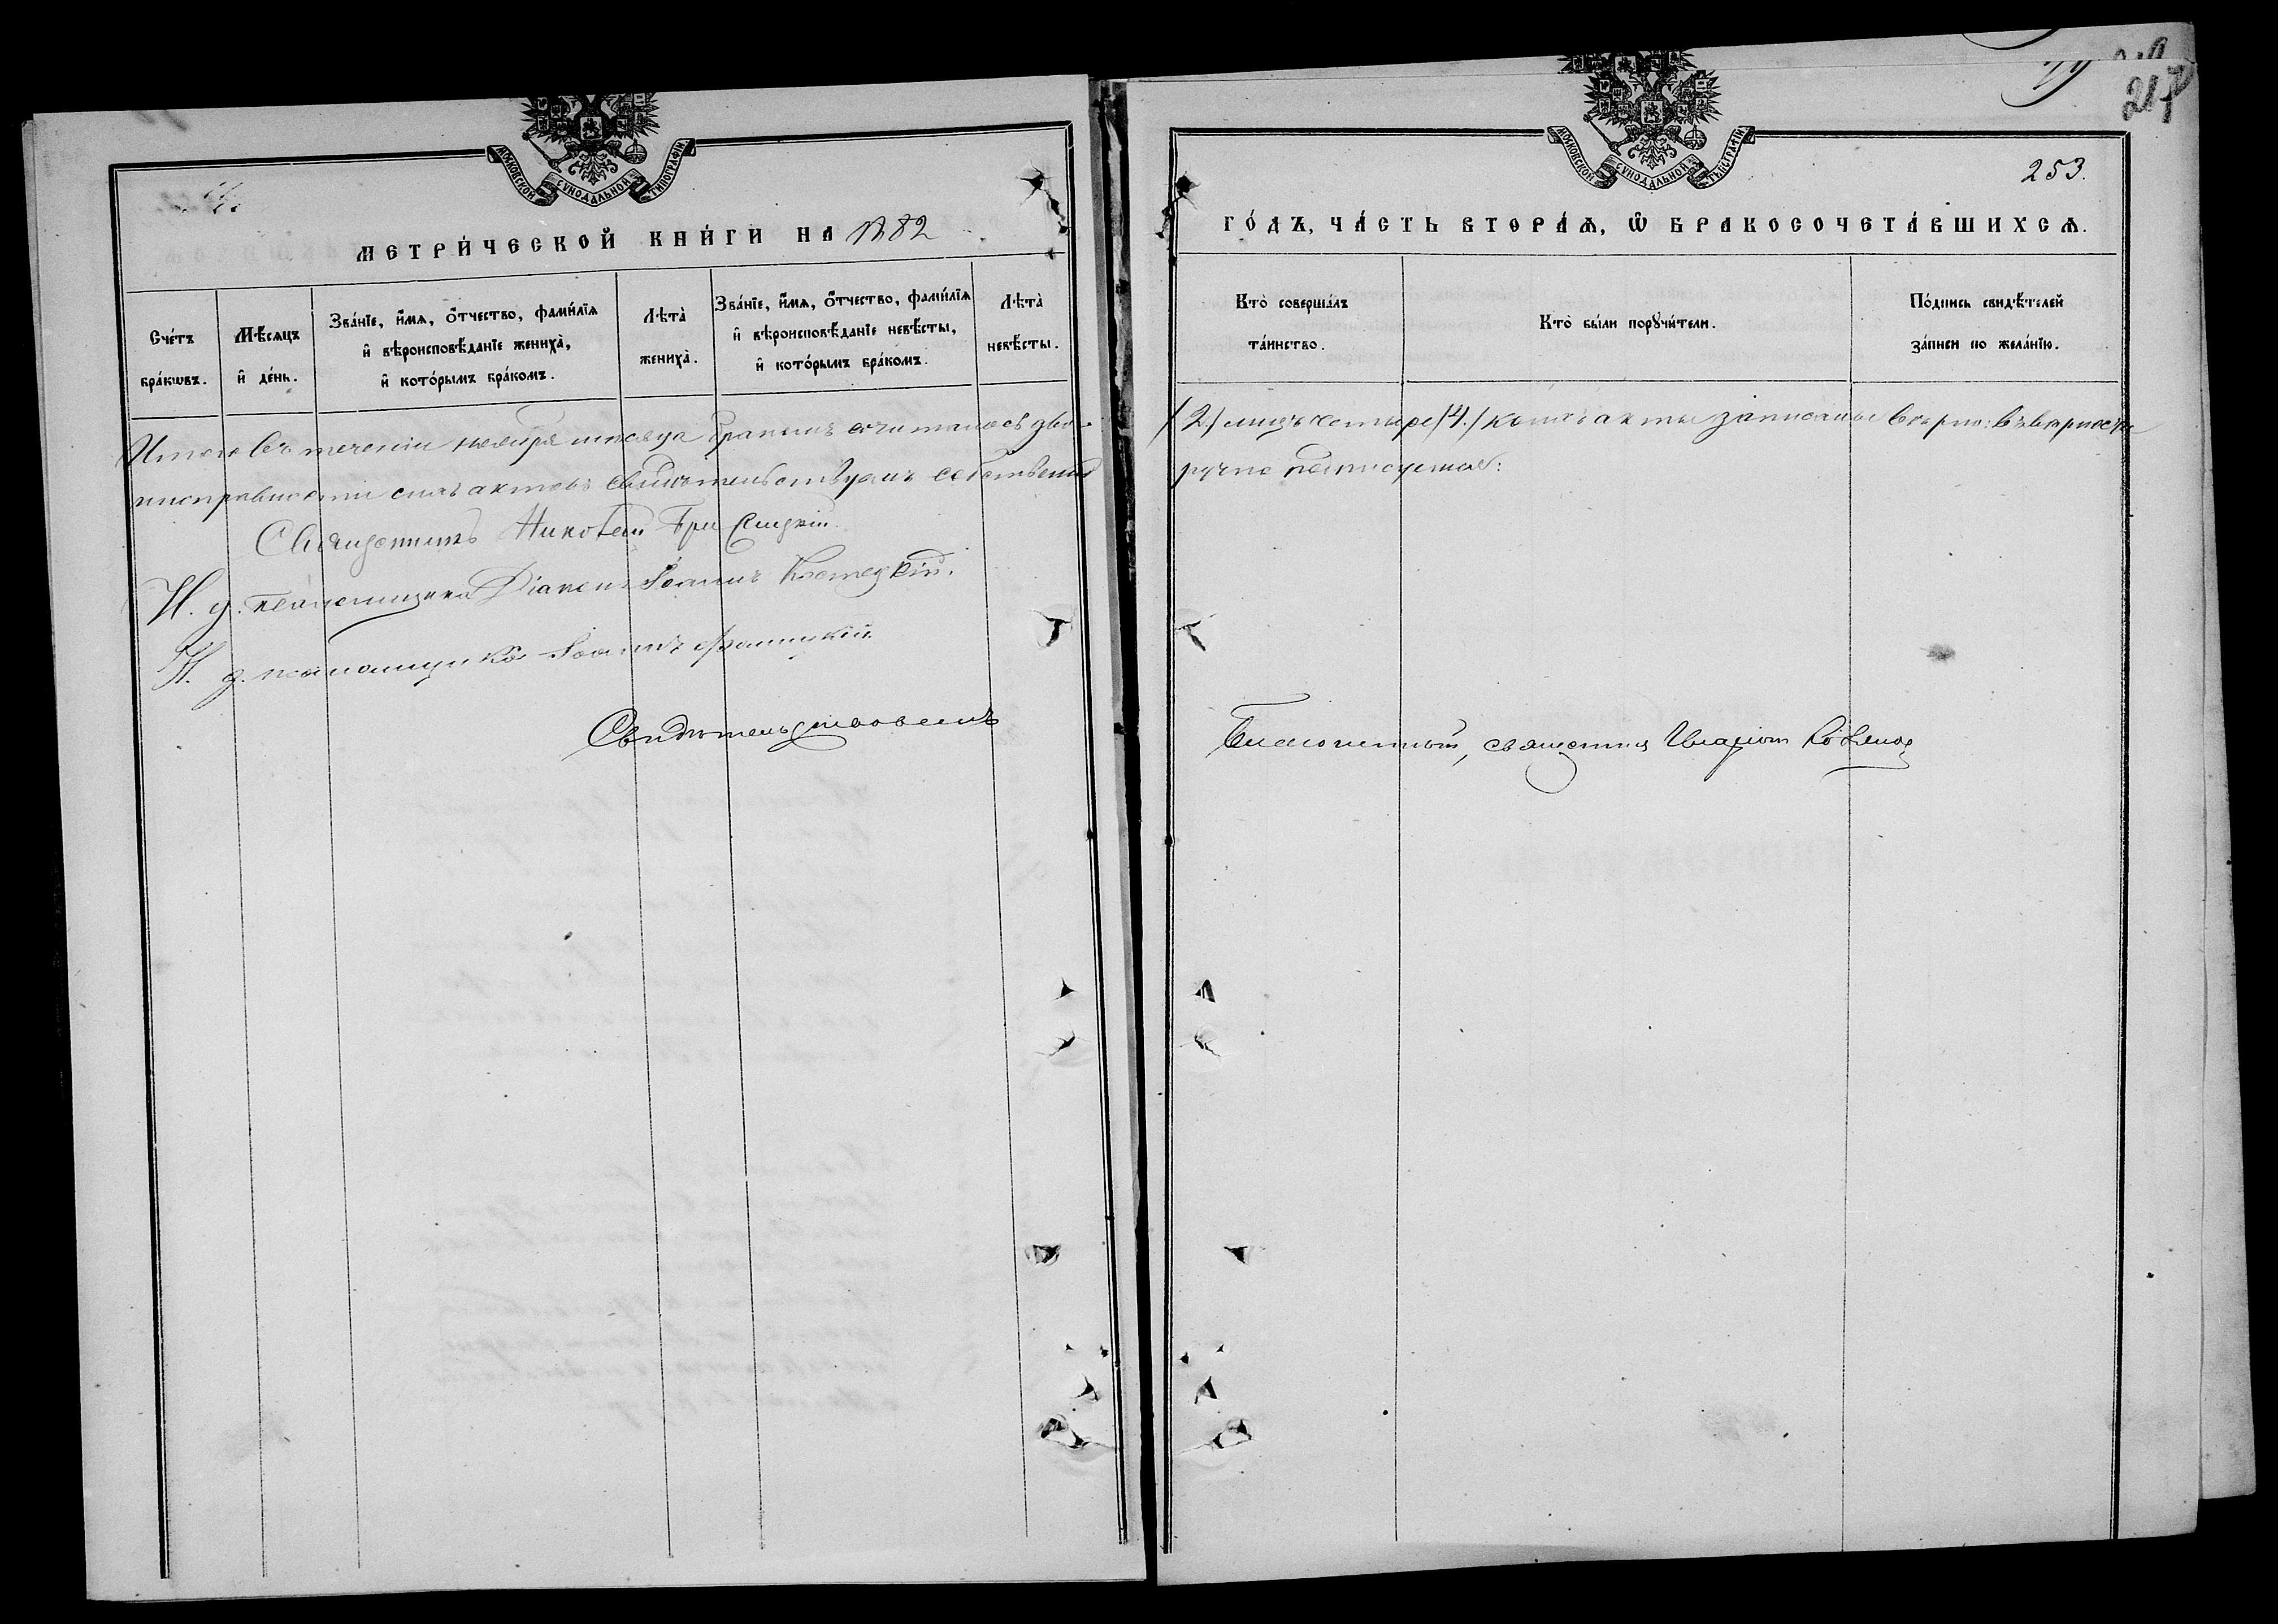 МОСКОВСКОЙ СѴНОДАЛЬНОЙ ТИПОГРАФІИ
МЕТРИ́ЧЕСКОЙ КНИ́ГИ НА 1882
Сче́тъ бра́кѡвъ.
Мѣ́сяцъ и҆ де́нь.
Зва́нїе, и҆́мя, ѻ҆́тчество, фами́лїя
и҆ вѣроисповѣ́данїе жениха̀,
и҆ кото́рымъ бра́комъ.
Лѣта̀ жениха̀.
Зва́нїе, и҆́мя, ѻ҆́тчество, фами́лїя
и҆ вѣроисповѣ́данїе невѣ́сты,
и҆ кото́рымъ бра́комъ.
Лѣта̀ невѣ́сты.
Итого въ теченіи ноября мѣсяца бракомъ сочиталось двое
исправности сихъ актовъ свидѣтельствуемъ собственно
Священникъ Николай
И. д. псаломщика Діаконъ Іоаннъ Костецкій.
И. д. псаломщика Іоаннъ
Свидѣтельствовалъ
217
МОСКОВСКОЙ СѴНОДАЛЬНОЙ ТИПОГРАФІИ
253.
ГО́ДЪ, ЧА́СТЬ ВТОРА́Ѧ, Ѿ БРАКОСОЧЕТА́ВШИХСѦ.
Кто̀ соверша́лъ
та́инство.
Кто̀ бы́ли порꙋчи́тели.
По́дпись свидѣ́телей
за́писи по жела́нїю.
/2/ лицъ четыре /4./ коихъ акты записаны вѣрно: въ вѣрности
ручно подписуемся:
Благочинный, священникъ Иларіонъ